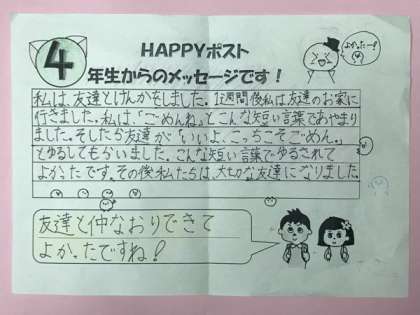 4
HAPPYポスト
年生からのメッセージです！
よかったー！
私は友達とけんかをしました。1週間後私は友達のお家に
行きました。私は「ごめんね」とこんな短い言葉であやまり
ました。そしたら友達が「いいよ、こっちこそごめん。」
とゆるしてもらいました。こんな短い言葉でゆるされて
よかったです。その後私たちは、大切な友達になりました。
友達と仲なおりできて
よかったですね！